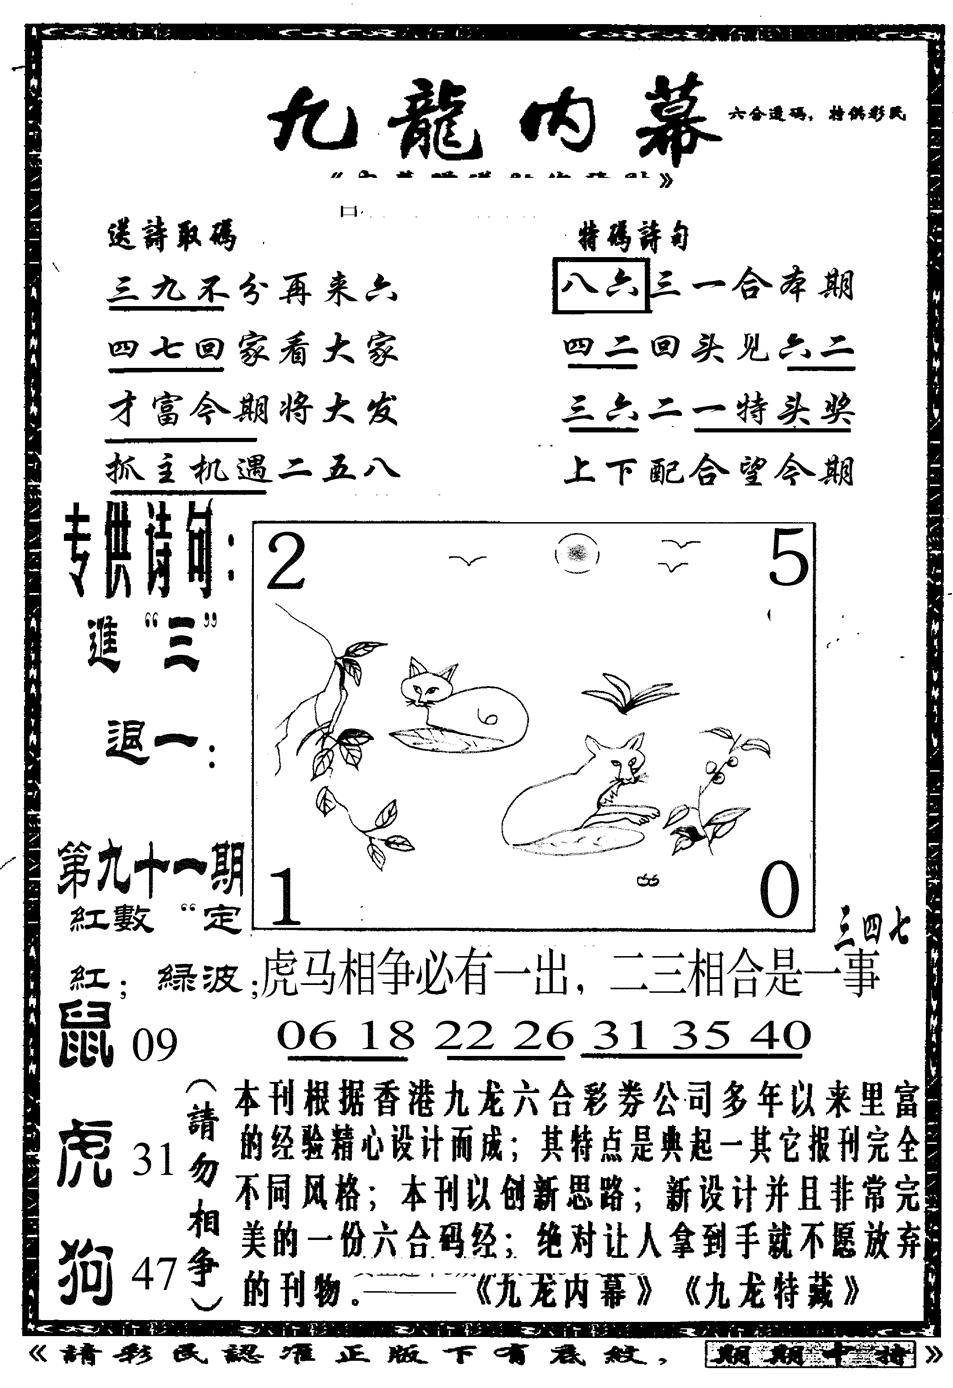 九龍内幕
六合透碼，特供彩民
送詩取碼
三九不分再来六
四七回家看大家
才富今期将大发
抓主机遇二五八
特碼詩句
八六三一合本期
四二回头见六二
三六二一特头奖
上下配合望今期
专供诗句：
進“三”
退一：
第九十一期
紅數“定
紅；綠波；
鼠 09
虎 31
狗 47
2 5
1 0
三四七
虎马相争必有一出，二三相合是一事
06 18 22 26 31 35 40
（請勿相争）
本刊根据香港九龙六合彩券公司多年以来里富
的经验精心设计而成；其特点是典起一其它报刊完全
不同风格；本刊以创新思路；新设计并且非常完
美的一份六合码经；绝对让人拿到手就不愿放弃
的刊物。———《九龙内幕》《九龙特藏》
《請彩民認准正版下有底紋，期期中特》